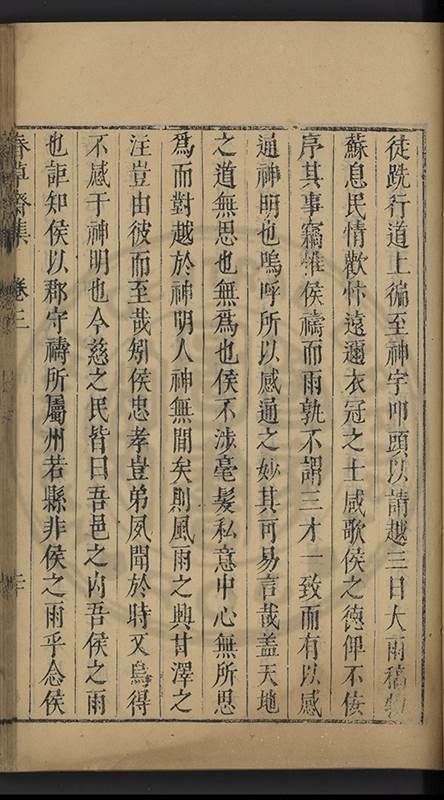 徒跣行道上徧至神宇叩頭以請越三日大雨稿物
蘇息民情歡忭遠邇衣冠之士咸歌侯之德俾不佞
序其事竊惟侯禱而雨孰不謂三才一致而有以感
通神明也嗚呼所以感通之妙其可易言哉盖天地
之道無思也無爲也侯不涉毫髮私意中心無所思
爲而對越於神明人神無間矣則風雨之興甘澤之
注豈由彼而至哉矧侯忠孝豈弟夙聞於時又烏得
不感于神明也今慈之民皆曰吾邑之内吾侯之雨
也詎知侯以郡守禱所屬州若縣非侯之雨乎念侯
春草齋集 卷三